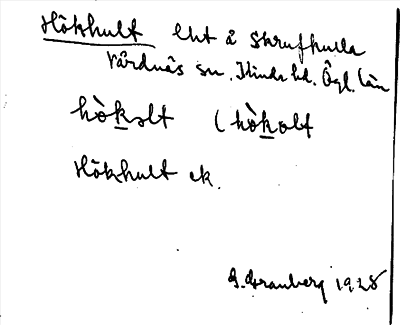 Hökhult lht å Skrufkulla
Vårdnäs sn. Kinda hd. Ögl. län
hò̀kəlt (hò̀kolt
Hökhult ek.
G. Granberg 1928